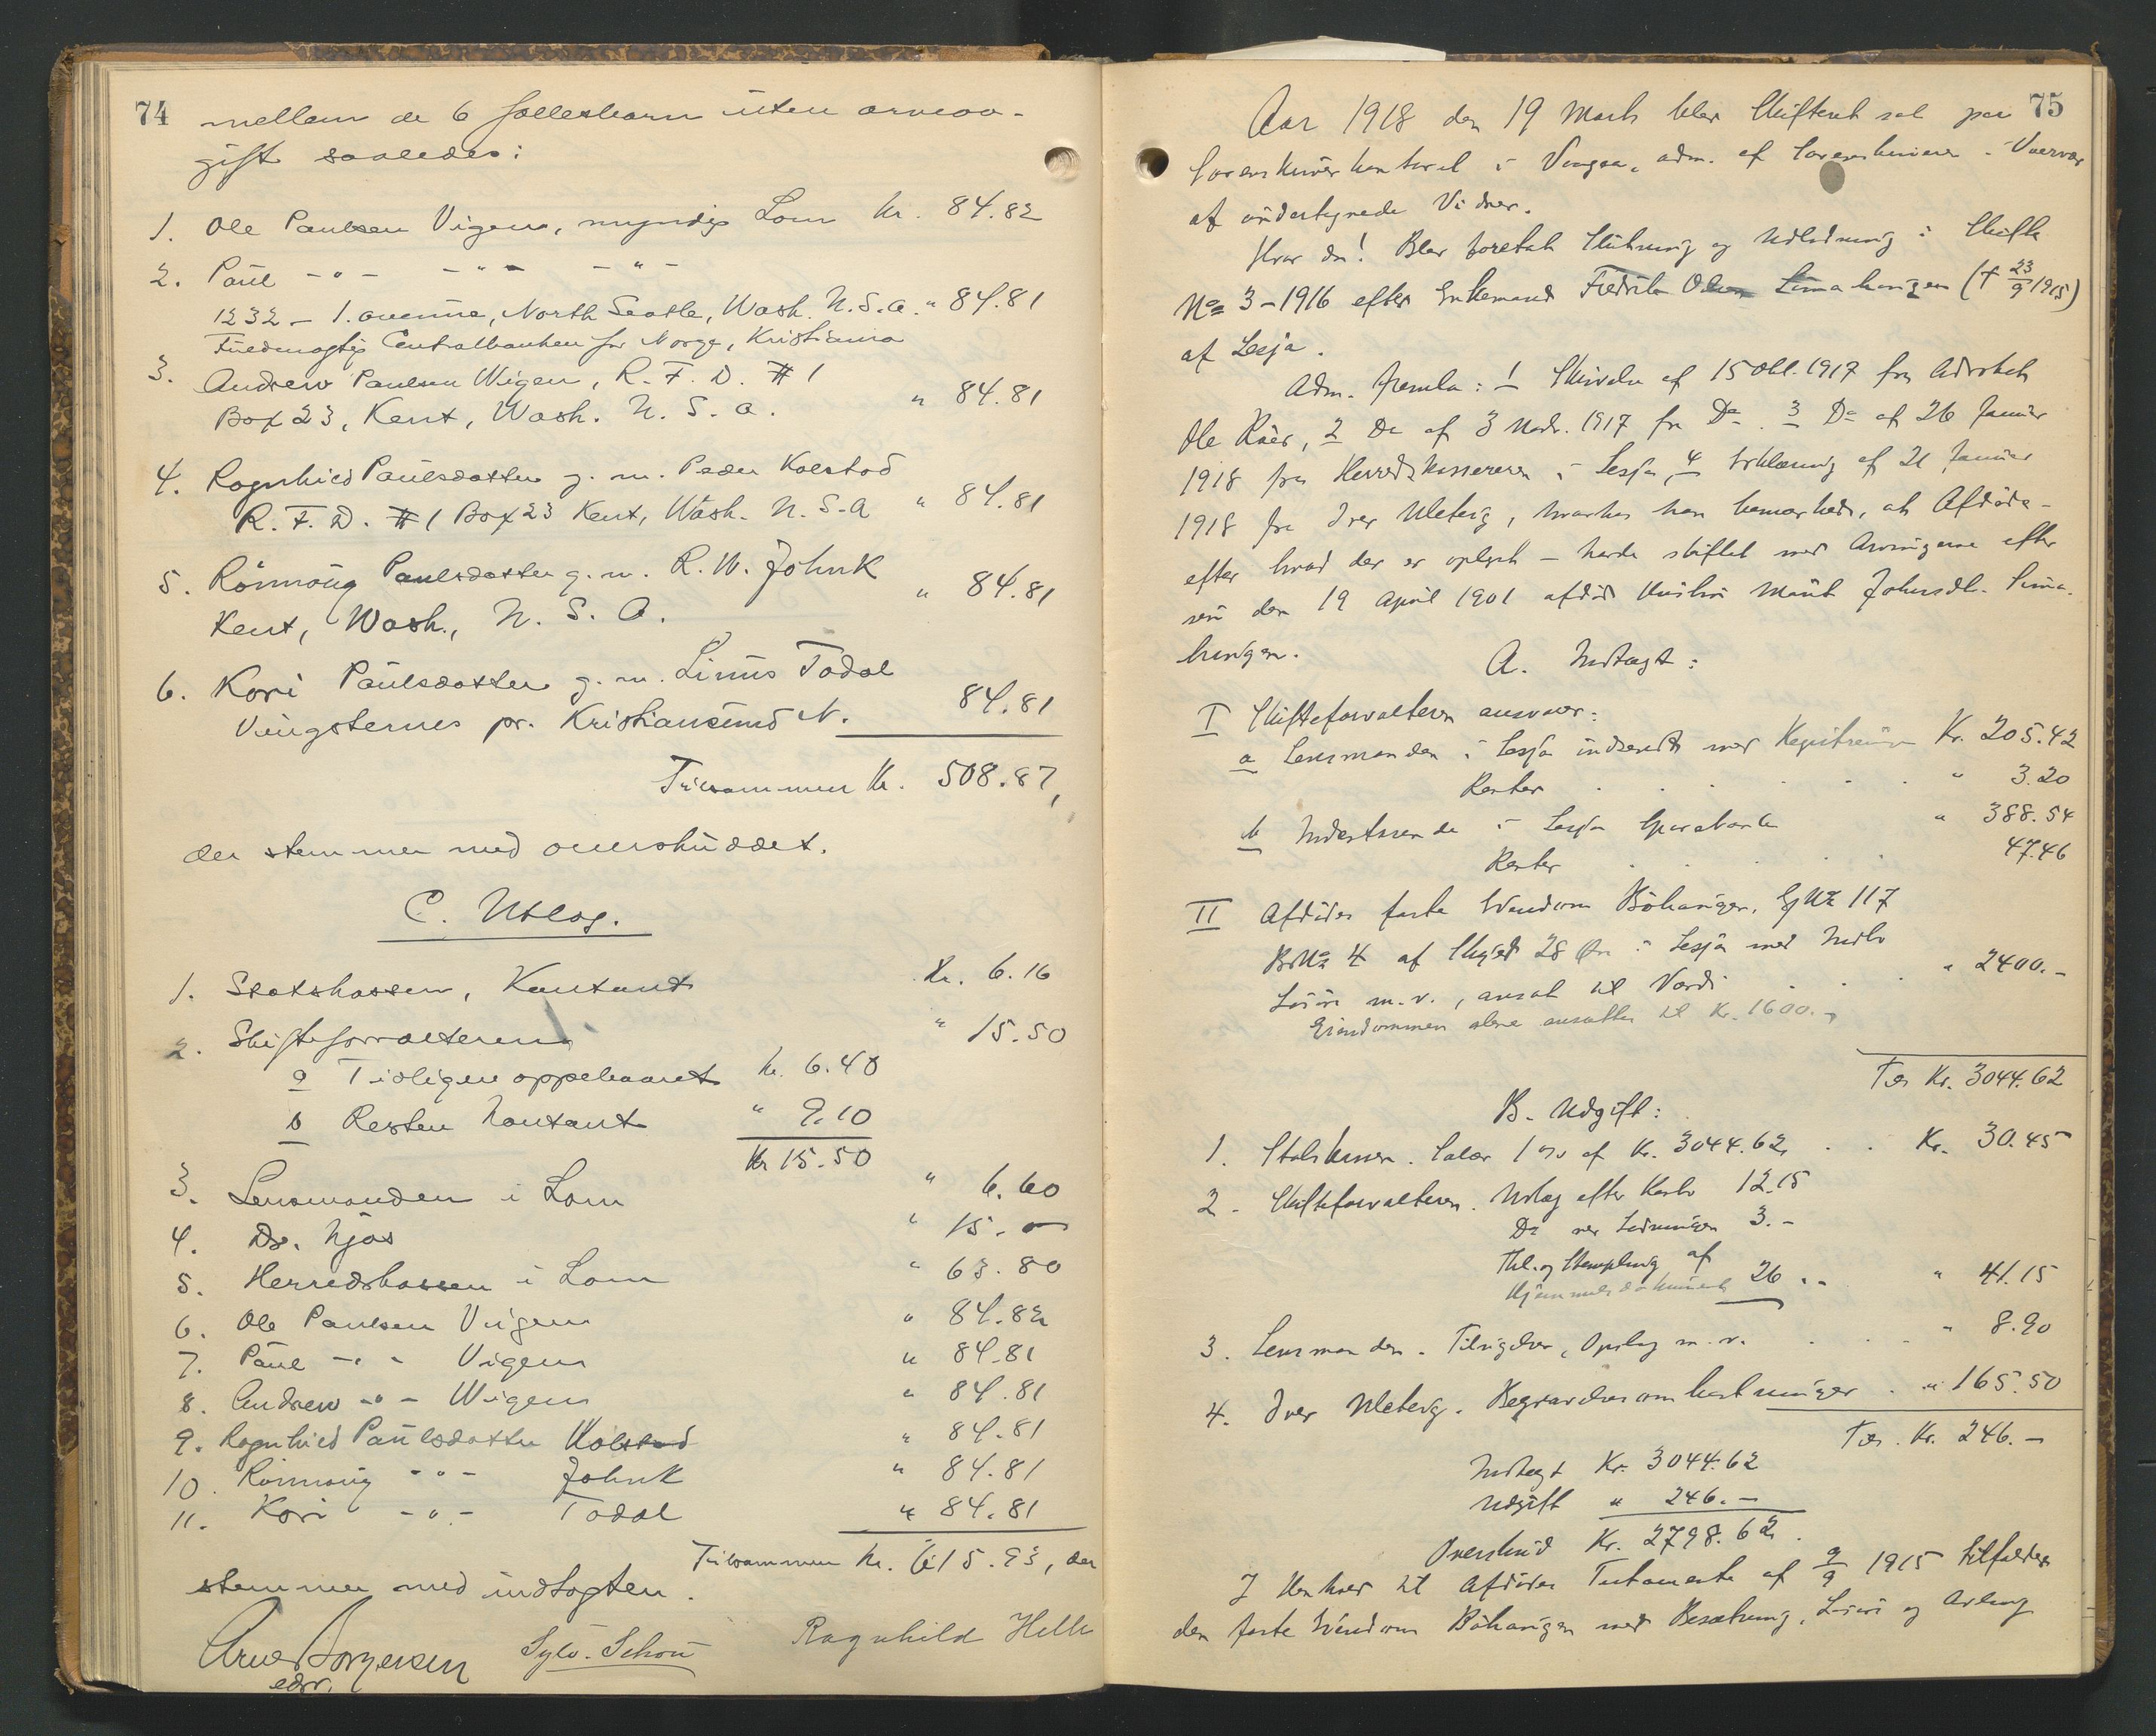 74
mellem de 6 fællesbarn uten arveav-
gift saaledes:
1. Ole Paulsen Vigen, myndig Lom Kr. 84.82
2. Paul -"- -"- -"-
1232 - 1. avenue, North Seatle, Wash. U.S.A. " 84.81
Fuldmægtig Centralbanken for Norge, Kristiania
3. Andrew Paulsen Wigen, R. F. D. #1
Box 23, Kent, Wash. U. S. A. " 84.81
4. Ragnhild Paulsdatter g. m. Peder Kolstad
R. F. D. #1 Box 23 Kent, Wash. U. S. A " 84.81
5. Rönnaug Paulsdatter g. m. R. W. Johnk
Kent, Wash., U. S. A. " 84.81
6. Kari Paulsdatter g. m. Linus Todal
Vingsternes pr. Kristiansund N. 84.81
Tilsammen Kr. 508.87,
der stemmer med overskuddet.
C. Utlæg.
1. Statskassen, Kontant Kr. 6.16
2. Skifteforvalteren " 15.50
a Tidligere oppebaaret Kr. 6.40
b Resten kontant " 9.10
Kr 15.50
3. Lensmanden i Lom " 6.60
4. Dr. Njøs " 15.-
5. Herredskassen i Lom " 63.80
6. Ole Paulsen Vigen " 84.82
7. Paul -"- Vigen " 84.81
8. Andrew -"- Wigen " 84.81
9. Ragnhild Paulsdatter Kolstad " 84.81
10. Rönnaug -"- Johnk " 84.81
11. Kari -"- Todal " 84.81
Tilsammen Kr. 615.93, der
stemmer med indtægten.
Arne Borgersen Sylv. Schou Ragnhild Helle
edsv.
75
Aar 1918 den 19 Marts blev Skifteret sat paa
Sorenskriverkontoret i Vaagaa, adm. af Sorenskriveren i Nærvær
af undertegnede Vidner.
Hvor da! Blev foretat Slutning og Udlodning i Skifte
No 3-1916 efter Enkemand Fredrik Olsen Limahaugen († 23/9 1915)
af Lesja.
Adm. fremla: 1 Skrivelse af 15 Okt. 1917 fra Advokat
Ole Kaas, 2 Do af 3 Novbr. 1917 fra Do. 3 Do af 26 Januar
1918 fra Herredskassereren i Lesja, 4 Erklæring af 21 Januar
1918 fra Iver Uleberg, hvorhos han bemærkede, at Afdøde -
efter hvad der er oplyst - havde skiftet med Arvingerne efter
sin den 19 April 1901 afdøde Hustru Marit Johnsdt. Lima-
haugen.
A. Indtægt:
I Skifteforvalteren ansvarer:
a Lensmanden i Lesja indsendt med Registrering Kr. 205.42
Renter " 3.20
b Indestaaende i Lesja Sparebank " 388.54
Renter 47.46
II Afdødes faste Eiendom Böhaugen, GNo 117
BNo 4 af Skyld 28 Øre i Lesja med Indbo
Løsøre m.v., ansat til Værdi " 2400.-
Eiendommen alene ansættes til Kr. 1600.-
Tils. Kr. 3044.62
B. Udgift:
1. Statskassen. Salær 1% af Kr. 3044.62 Kr. 30.45
2. Skifteforvalteren. Utlæg efter Konto 12.15
Do ved Slutningen 3.-
Thl. og Stempling af
Hjemmelsdokument 26.- " 41.15
3. Lensmanden. Tilsigelser, Opslag m.v. " 8.90
4. Iver Uleberg. Begravelsesomkostninger " 165.50
Tils. Kr. 246.-
Indtægt Kr. 3044.62
Udgift " 246.-
Overskud Kr. 2798.62.
I Henhold til Afdødes Testamente af 9/9 1915 tilfalder
den faste Eiendom Böhaugen med Besætning, Løsøre og Avling